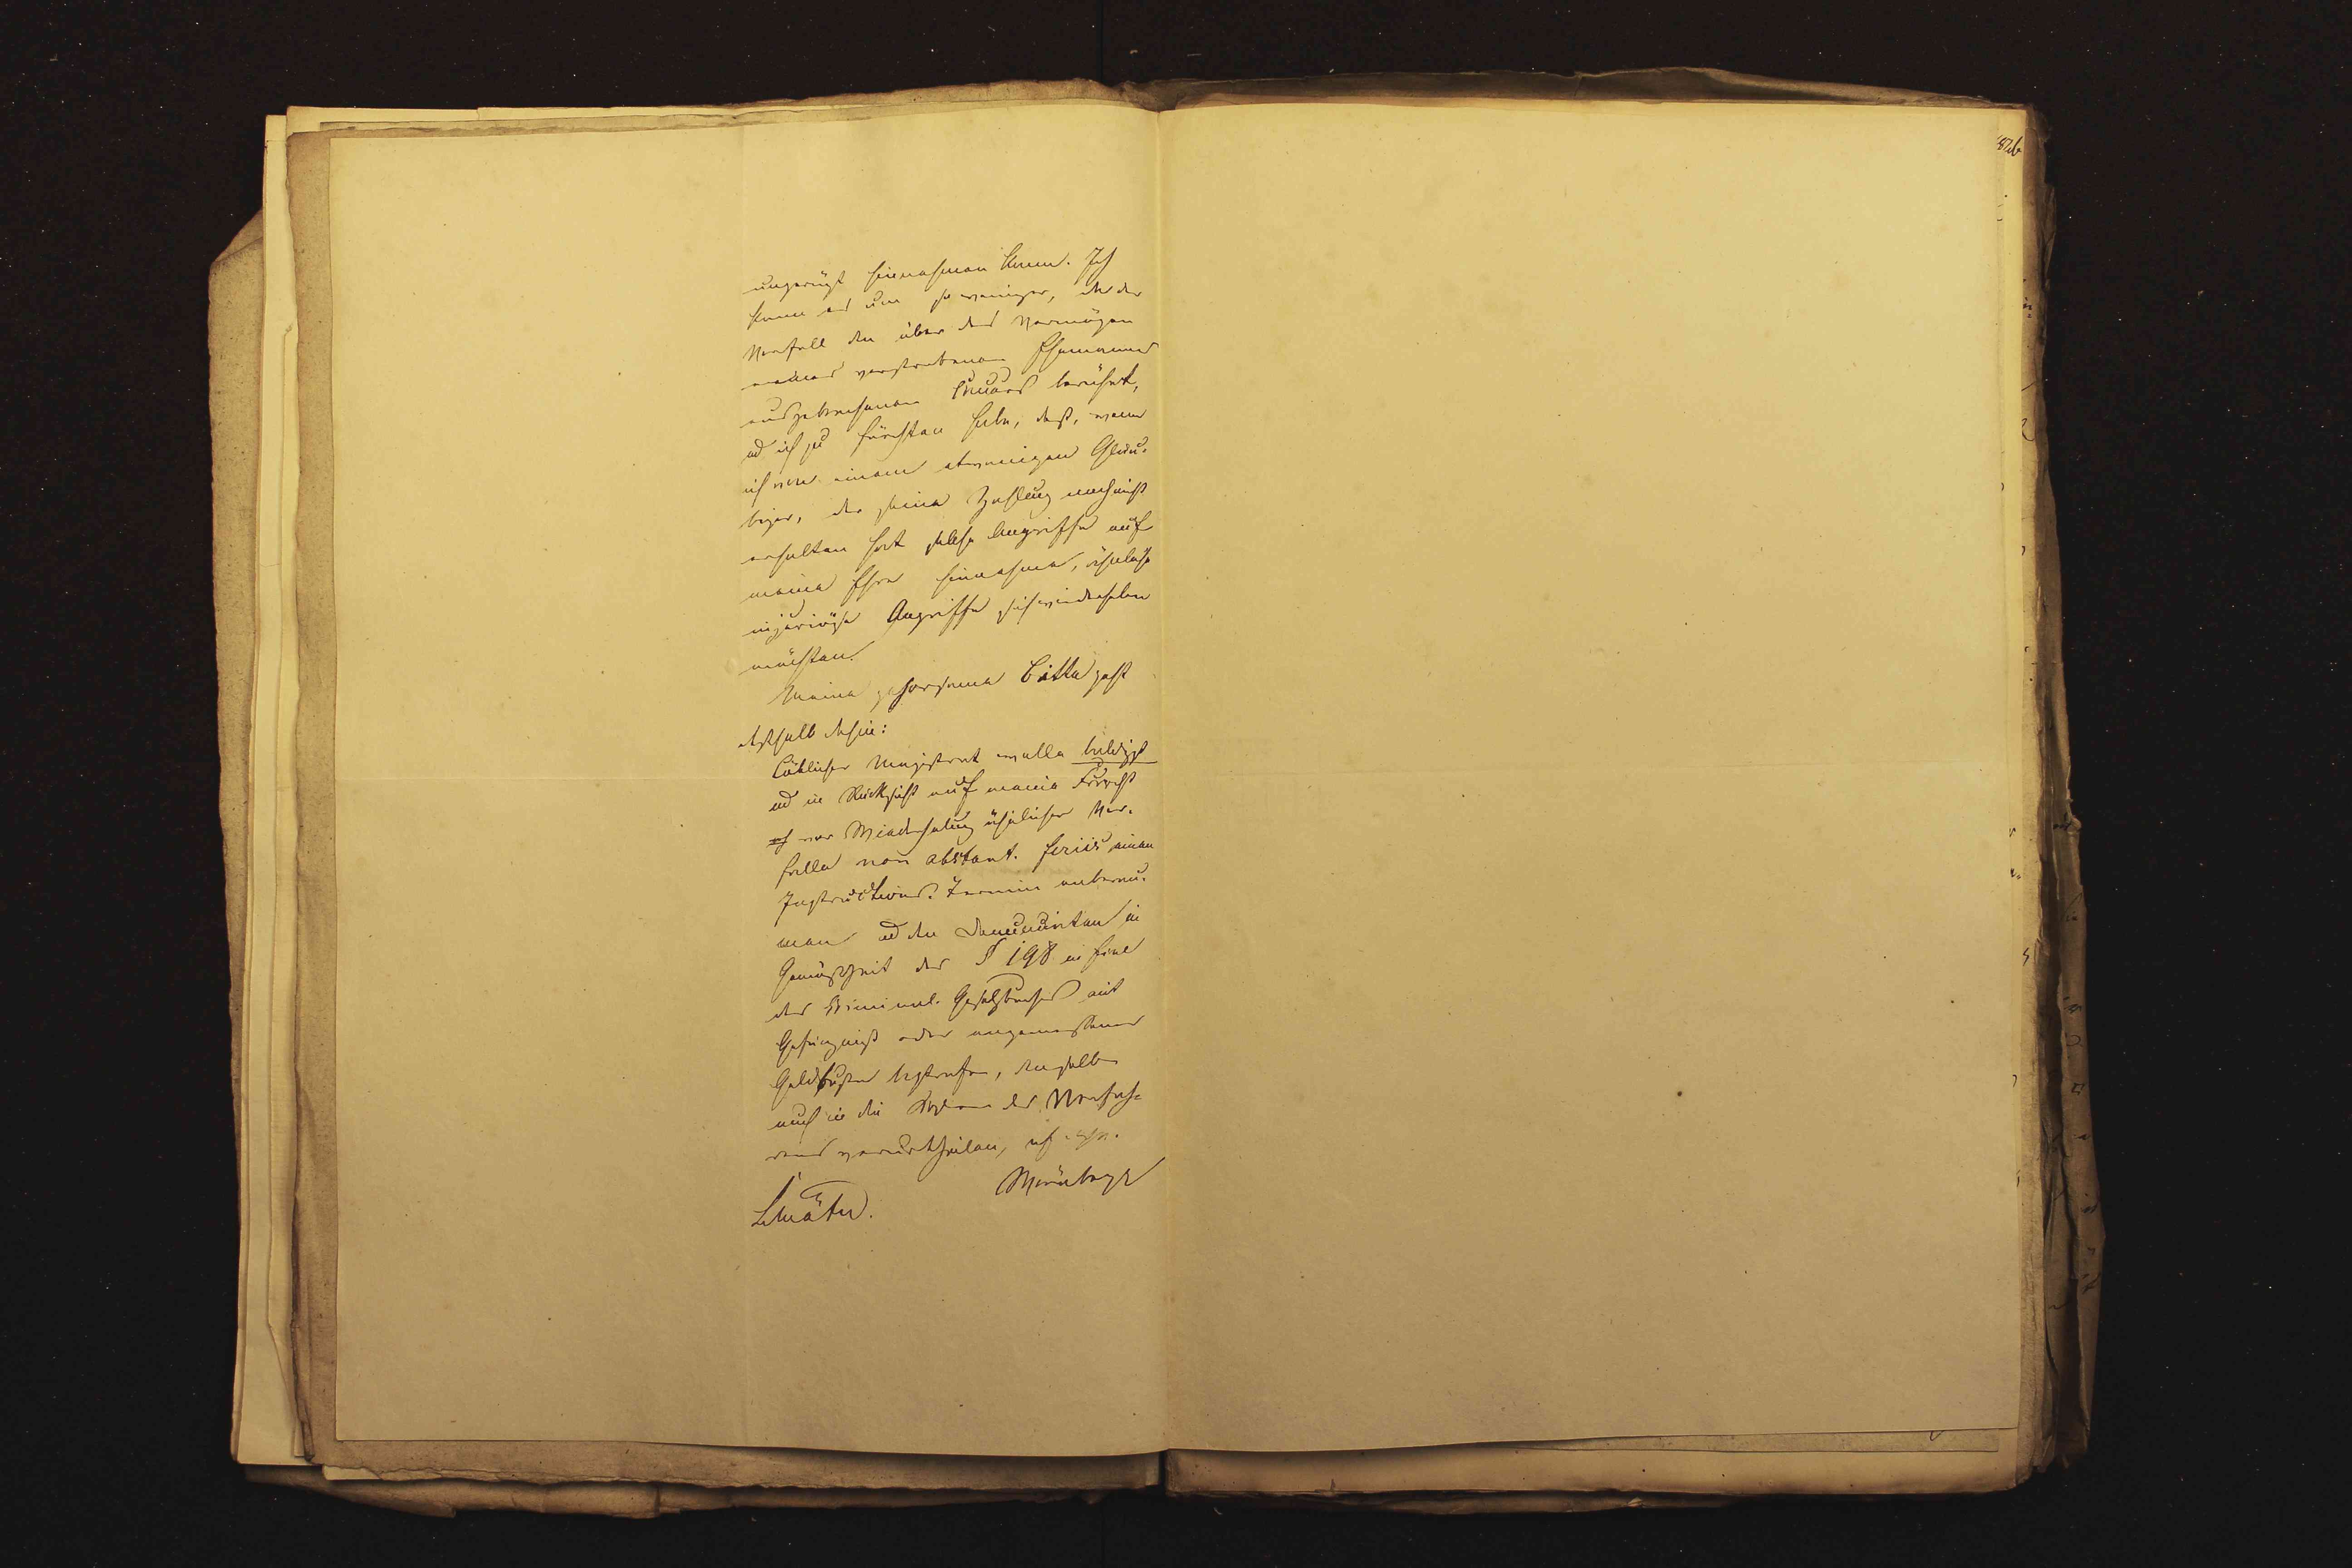 ungerügt hinnehmen kann. Ich
kann es um so weniger, als der
Vorfall den über das Vermögen
meines verstorbenen Ehemannes
ausgebrochenen Concurs berührt,
und ich zu fürchten habe, daß, wenn
ich von einem etwanigen Gläu-
biger, der seine Zahlung noch nicht
erhalten hat solche Angriffe auf
meine Ehre hinnehme, ähnliche
injuriöse Angriffe sich wiederholen
möchten.
Meine gehorsame Bitte geht
deshalb dahin:
Löblicher Magistrat wolle baldigst
und in Rücksicht auf meine Furcht
vor Wiederholung ähnlicher Vor-
fälle non obstant. feriis einen
Instructions-Termin anberau-
men und den Denunciaten in
Gemäßheit des § 198 in fine
des Criminal-Gesetzbuches mit
Gefängniß oder angemessener
Geldbuße bestrafen, denselben
auch in die Kosten des Verfah-
rens verurtheilen,